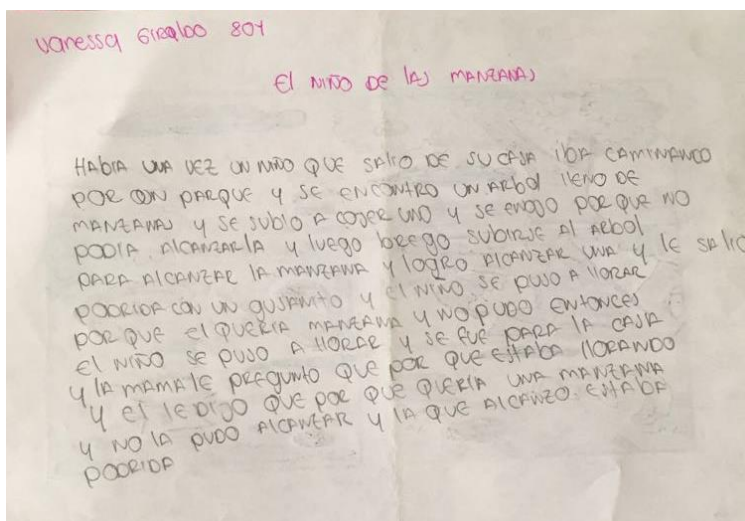 Vanessa Giraldo 804
El NIÑO DE lAS MANZANAS
HABIA UNA VEZ UN NIÑO QUE SALIO DE SU CASA IBA CAMINANDO
POR UN PARQUE Y SE ENCONTRO UN ARBOL lleNO DE
MANZANAS Y SE SUBIO A COJER UNO Y SE ENOJO POR QUE NO
PODIA AlCANZARlA Y luego brego SUBIRSE Al ARBOl
PARA AlCANZAR lA MANZANA Y lOGRO AlCANZAR UNA Y lE SAlIO
POORIDA CON UN GUSANITO Y El NIÑO SE PUSO A llORAR
POR QUE El QUERIA MANZANA Y NO PUDO ENTONCES
El NIÑO SE PUSO A llORAR Y SE FUE PARA lA CASA
Y lA MAMA lE PREGUNTO QUE POR QUE ESTABA llORANDO
Y El lE DIJO QUE POR QUE QUERIA UNA MANZANA
Y NO lA PUDO AlCANZAR Y lA QUE AlCANZO ESTABA
POORIDA